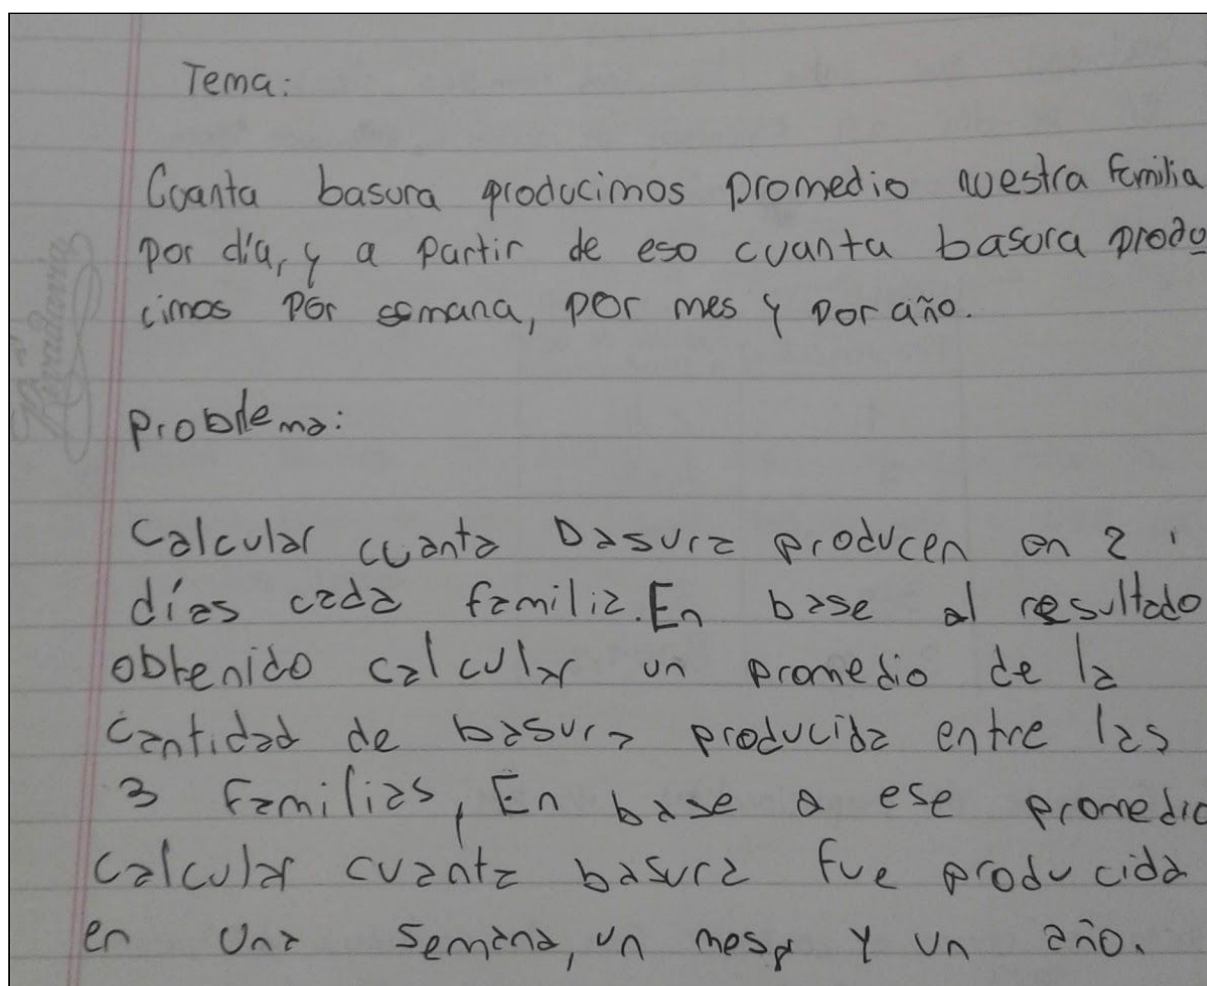 Tema:
Cuanta basura producimos promedio nuestra familia
por día, y a partir de eso cuanta basura produ
cimos por semana, por mes y por año.
problema:
Calcular cuanta basura producen en 2
días cada familia. En base al resultado
obtenido calcular un promedio de la
cantidad de basura producida entre las
3 familias, En base a ese promedio
calcular cuanta basura fue producida
en una semana, un mes y un año.
Rivadavia